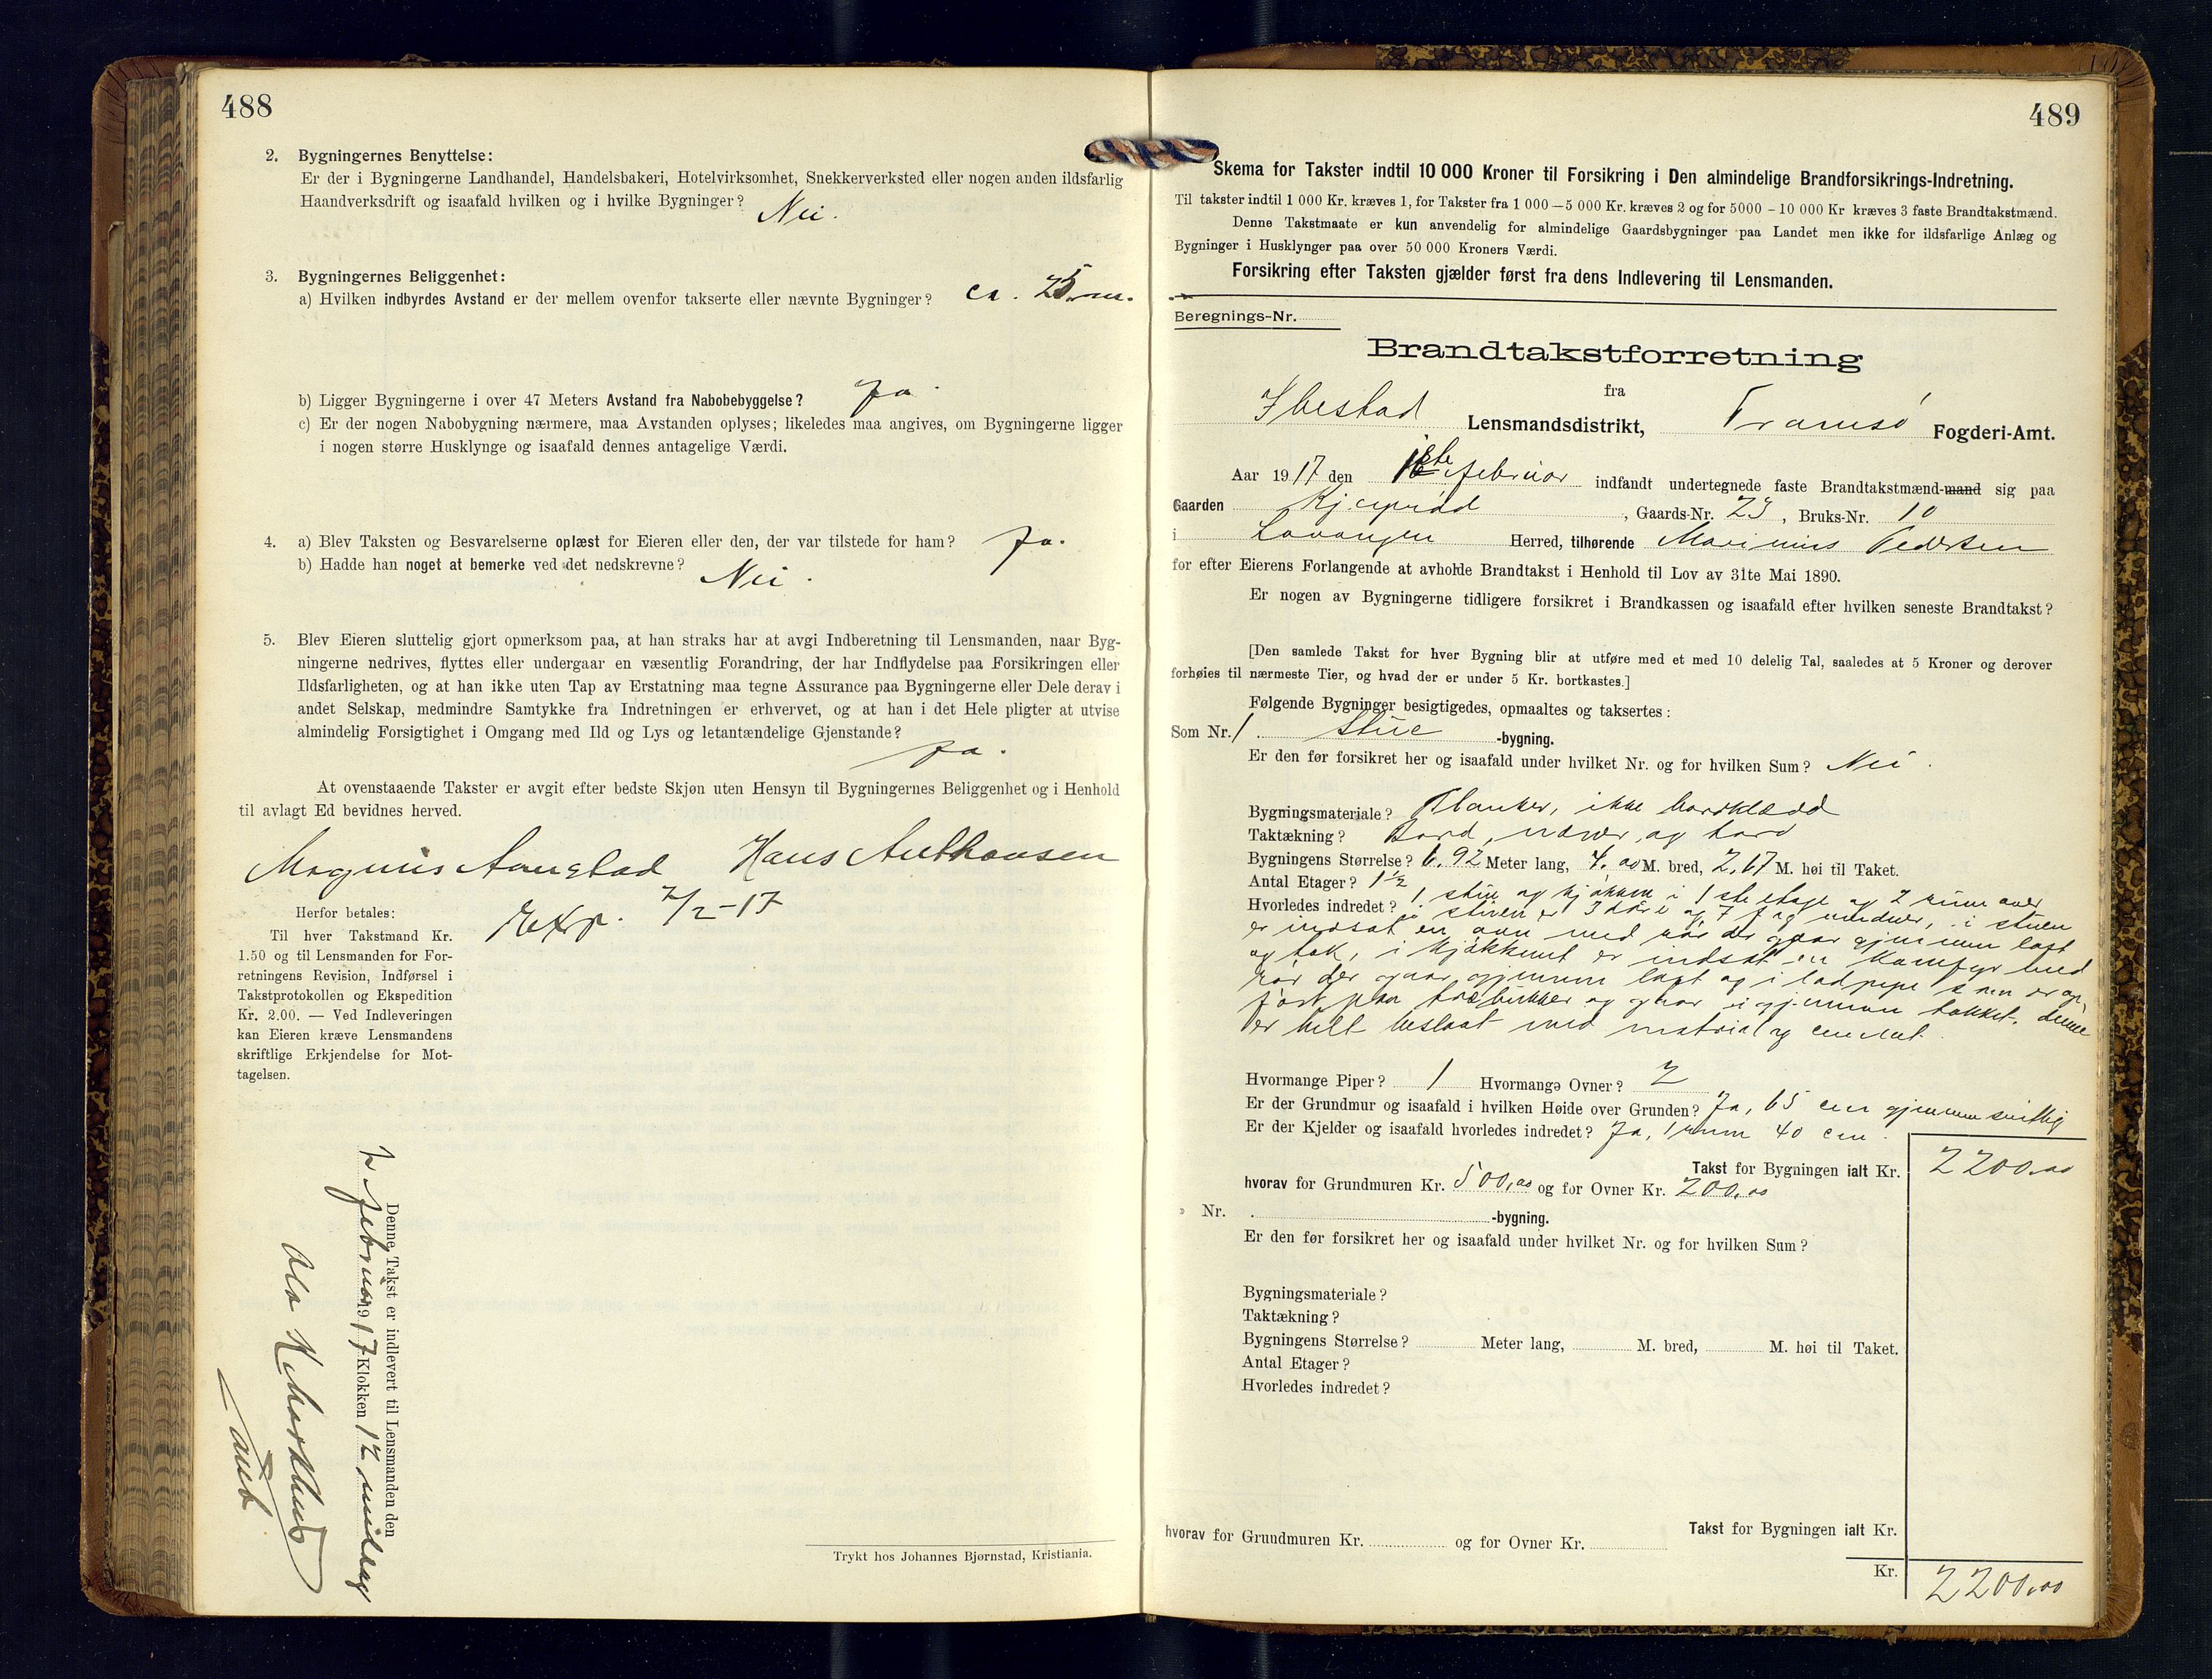 488
2. Bygningernes Benyttelse:
Er der i Bygningerne Landhandel, Handelsbakeri, Hotelvirksomhet, Snekkerverksted eller nogen anden ildsfarlig
Haandverksdrift og isaafald hvilken og i hvilke Bygninger? Nei.
3. Bygningernes Beliggenhet:
a) Hvilken indbyrdes Avstand er der mellem ovenfor takserte eller nævnte Bygninger? ca. 25 m.
b) Ligger Bygningerne i over 47 Meters Avstand fra Nabobebyggelse? Ja
c) Er der nogen Nabobygning nærmere, maa Avstanden oplyses; likeledes maa angives, om Bygningerne ligger
i nogen større Husklynge og isaafald dennes antagelige Værdi.
4. a) Blev Taksten og Besvarelserne oplæst for Eieren eller den, der var tilstede for ham? Ja.
b) Hadde han noget at bemerke ved det nedskrevne? Nei.
5. Blev Eieren sluttelig gjort opmerksom paa, at han straks har at avgi Indberetning til Lensmanden, naar Byg-
ningerne nedrives, flyttes eller undergaar en væsentlig Forandring, der har Indflydelse paa Forsikringen eller
Ildsfarligheten, og at han ikke uten Tap av Erstatning maa tegne Assurance paa Bygningerne eller Dele derav i
andet Selskap, medmindre Samtykke fra Indretningen er erhvervet, og at han i det Hele pligter at utvise
almindelig Forsigtighet i Omgang med Ild og Lys og letantændelige Gjenstande?
Ja.
At ovenstaaende Takster er avgit efter bedste Skjøn uten Hensyn til Bygningernes Beliggenhet og i Henhold
til avlagt Ed bevidnes herved.
Magnus Aanstad Hans Anthonsen
Exp. 7/2-17
Herfor betales:
Til hver Takstmand Kr.
1.50 og til Lensmanden for For-
retningens Revision, Indførsel i
Takstprotokollen og Ekspedition
Kr. 2.00. — Ved Indleveringen
kan Eieren kræve Lensmandens
skriftlige Erkjendelse for Mot-
tagelsen.
Denne Takst er indlevert til Lensmanden den
2 februar 1917 Klokken 12 middag
Ola
Trykt hos Johannes Bjørnstad, Kristiania.
489
Skema for Takster indtil 10 000 Kroner til Forsikring i Den almindelige Brandforsikrings-Indretning.
Til takster indtil 1 000 Kr. kræves 1, for Takster fra 1 000 – 5 000 Kr. kræves 2 og for 5000 – 10 000 Kr kræves 3 faste Brandtakstmænd.
Denne Takstmaate er kun anvendelig for almindelige Gaardsbygninger paa Landet men ikke for ildsfarlige Anlæg og
Bygninger i Husklynger paa over 50 000 Kroners Værdi.
Forsikring efter Taksten gjælder først fra dens Indlevering til Lensmanden.
Beregnings-Nr.
Brandtakstforretning
fra
Ibestad Lensmandsdistrikt, Tromsö Fogderi-Amt.
Aar 1917 den februar indfandt undertegnede faste Brandtakstmænd-mand sig paa
Gaarden , Gaards-Nr. 23, Bruks-Nr. 10
i Lavangen Herred, tilhørende Marinius Pedersen
for efter Eierens Forlangende at avholde Brandtakst i Henhold til Lov av 31te Mai 1890.
Er nogen av Bygningerne tidligere forsikret i Brandkassen og isaafald efter hvilken seneste Brandtakst?
[Den samlede Takst for hver Bygning blir at utføre med et med 10 delelig Tal, saaledes at 5 Kroner og derover
forhøies til nærmeste Tier, og hvad der er under 5 Kr. bortkastes.]
Følgende Bygninger besigtigedes, opmaaltes og taksertes:
Som Nr. 1. Stue -bygning.
Er den før forsikret her og isaafald under hvilket Nr. og for hvilken Sum? Nei.
Bygningsmateriale? Planker, ikke bordklædd
Taktækning? Bord, næver, og torv
Bygningens Størrelse? 6.92 Meter lang, 4.00 M. bred, 2.67 M. høi til Taket.
Antal Etager? 1½
Hvorledes indredet? 1 stue og kjökken i 1ste etage og 2 rum over
i stuen er 3 döre og 7 fag vinduer, i stuen
er indsat en ovn med rör der gaar gjennem loft
og tak, i kjökkenet er indsat en komfyr med
rör der gaar gjennem loft og i lad pipe som er op-
fört paa træbukker og gaar gjennem takket, denne
er helt beslaat med material og cement.
Hvormange Piper? 1 Hvormange Ovner? 2
Er der Grundmur og isaafald i hvilken Høide over Grunden? Ja, 65 cm gjennemsnitlig
Er der Kjelder og isaafald hvorledes indredet? Ja, 1 rum 40 cm.
Takst for Bygningen ialt Kr. 2200,00
hvorav for Grundmuren Kr. 500,00 og for Ovner Kr. 200,00
» Nr. . -bygning.
Er den før forsikret her og isaafald under hvilket Nr. og for hvilken Sum?
Bygningsmateriale?
Taktækning?
Bygningens Størrelse? Meter lang, M. bred, M. høi til Taket.
Antal Etager?
Hvorledes indredet?
Takst for Bygningen ialt Kr.
hvorav for Grundmuren Kr. og for Ovner Kr.
Kr. 2200,00